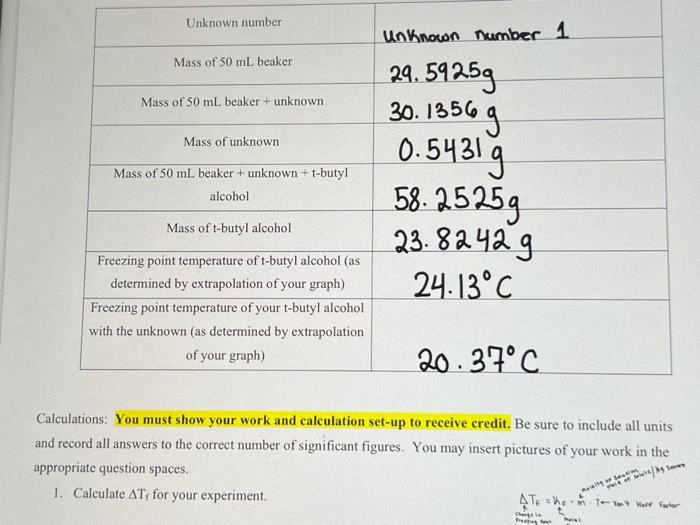 Unknown number
Unknown number 1
Mass of 50 mL beaker
29.5925g
Mass of 50 mL beaker + unknown
30.1356 g
Mass of unknown
0.5431 g
Mass of 50 mL beaker + unknown + t-butyl
alcohol
58.2525g
Mass of t-butyl alcohol
23.8242 g
Freezing point temperature of t-butyl alcohol (as
determined by extrapolation of your graph)
24.13°C
Freezing point temperature of your t-butyl alcohol
with the unknown (as determined by extrapolation
of your graph)
20.37°C
Calculations: You must show your work and calculation set-up to receive credit. Be sure to include all units
and record all answers to the correct number of significant figures. You may insert pictures of your work in the
appropriate question spaces.
1. Calculate ΔTf for your experiment.
molality of solution
ΔTF = KF · m · i ← Van't Hoff Factor
change in
freezing point
molal